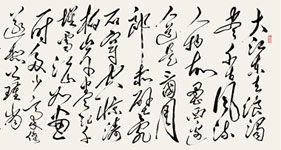 大江東去浪淘
盡千古風流
人物故壘西邊
人道是三國周
郎赤壁亂
石穿空驚濤
拍岸捲起千
堆雪江山如畫
一時多少豪傑
遙想公瑾當